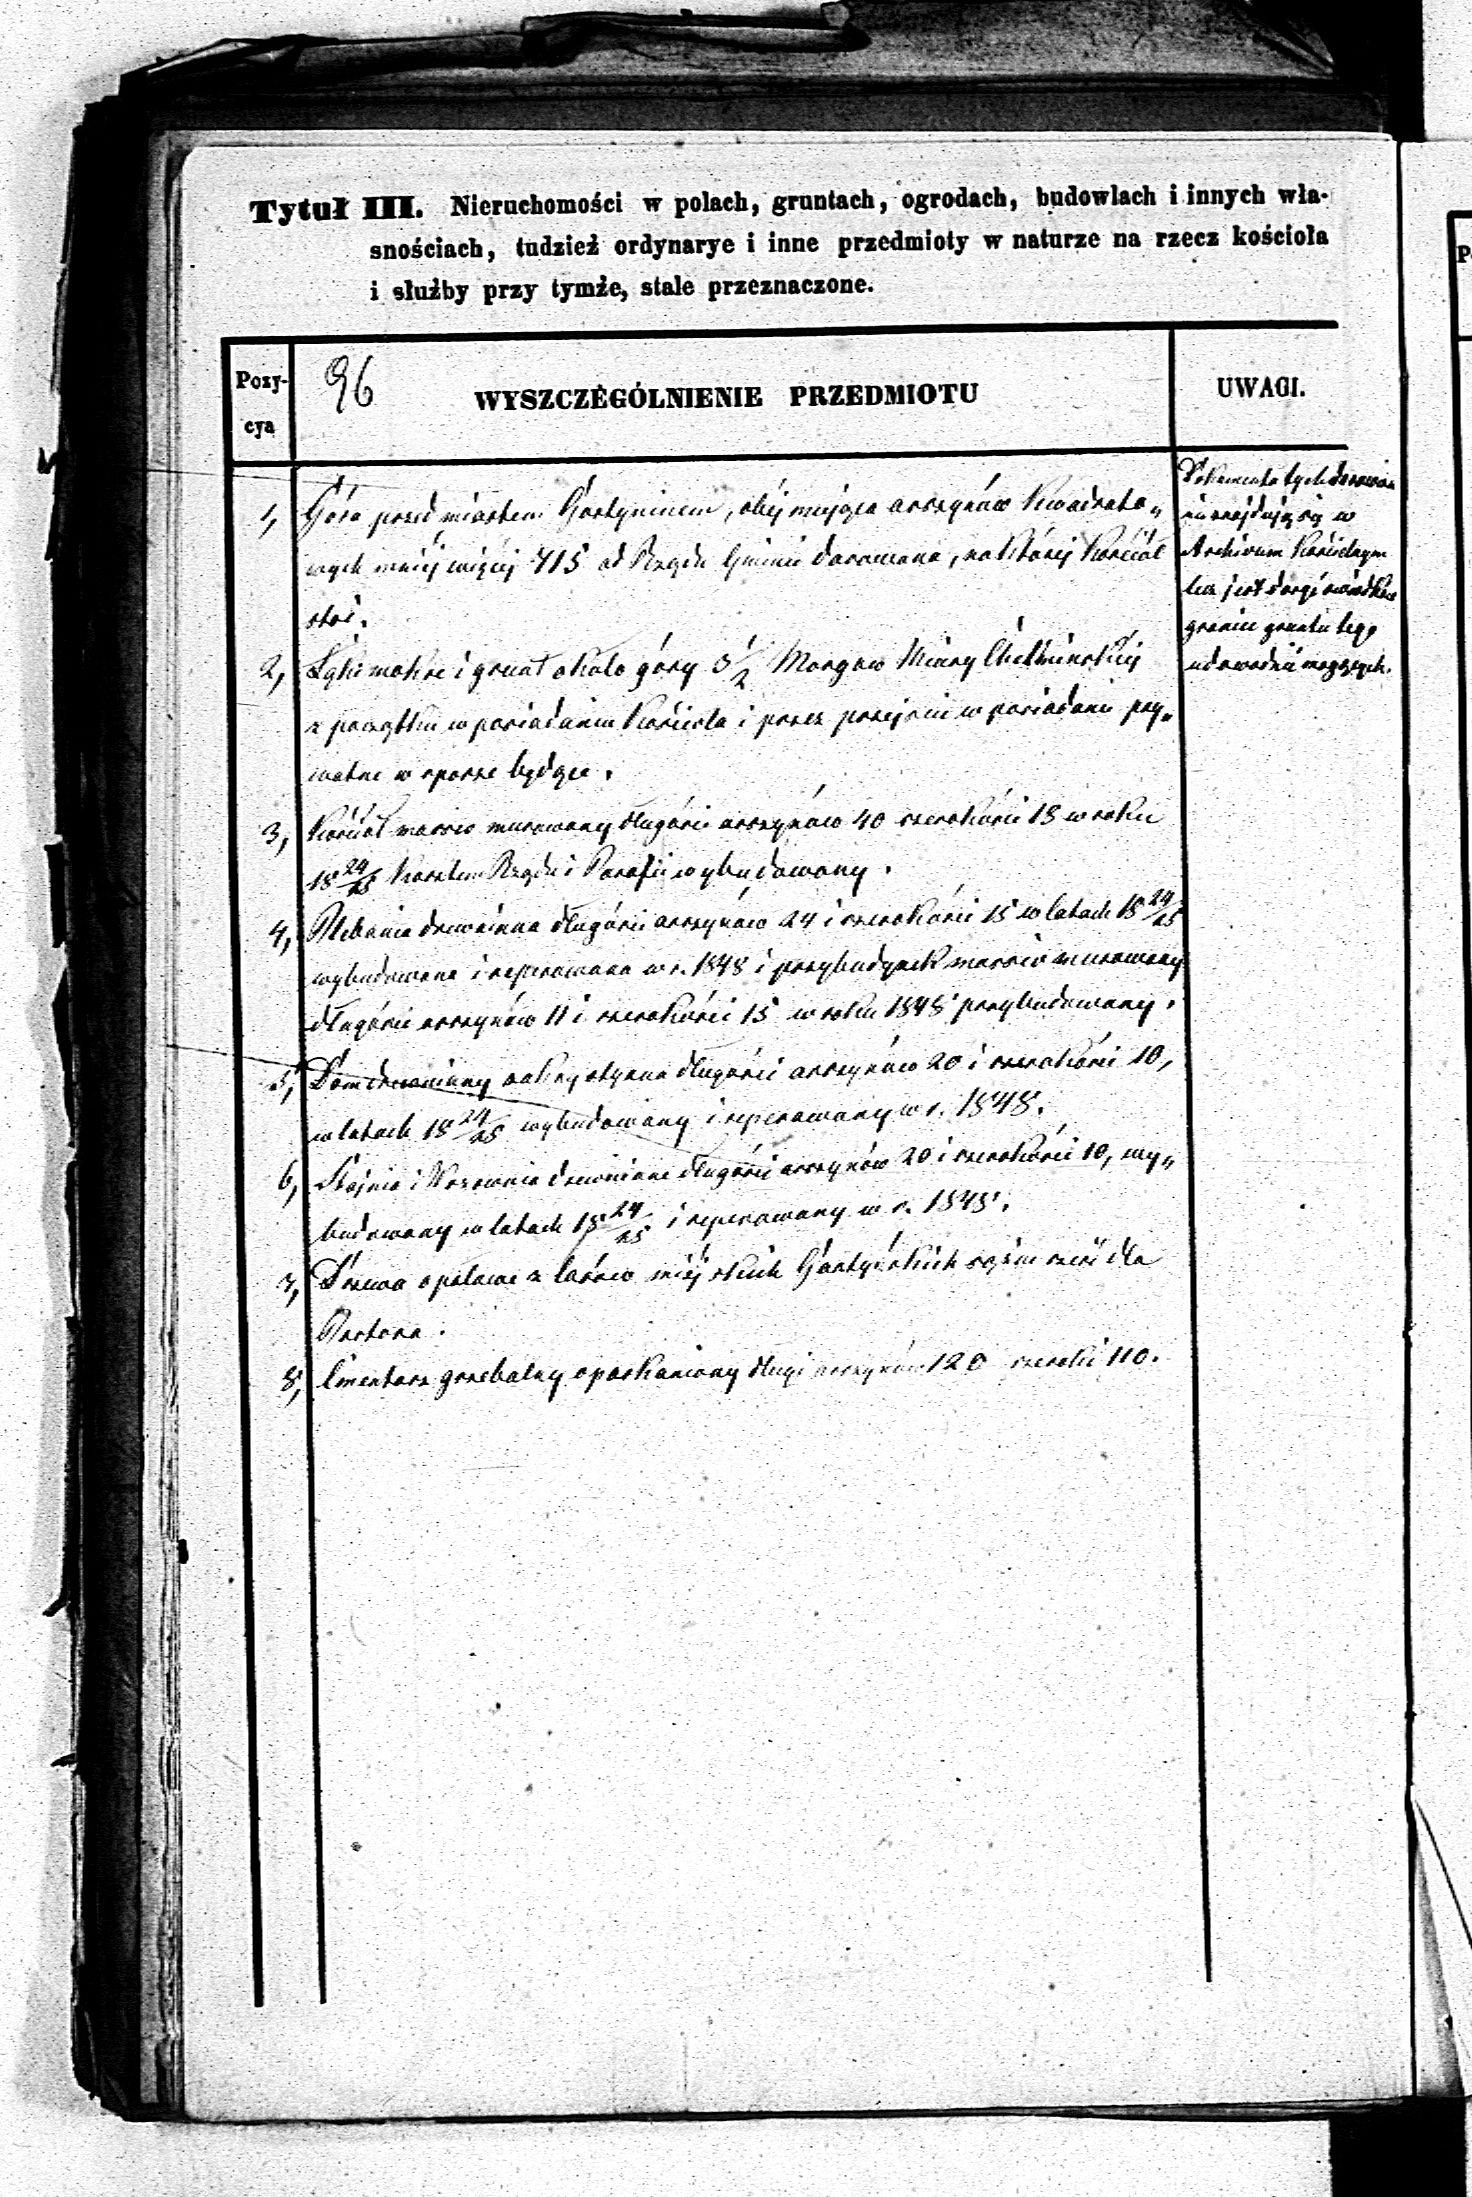 Tytuł III. Nieruchomości w polach, gruntach, ogrodach, budowlach i innych wła-
snościach, tudzież ordynarye i inne przedmioty w naturze na rzecz kościoła
i służby przy tymże, stale przeznaczone.
Pozy-
cya
96
WYSZCZEGÓLNIENIE PRZEDMIOTU
UWAGI.
1, Góra przed miastem Gostyninem, obéjmująca arszynów kwadrato„
wych mniéj więcéj 715 od Rządu Gminie darowana, na któréj Kościół
stoi.
2, Łąki mokre i grunt około góry 5 1/2 Morgów Miary Chełmińskiéj
z początku w posiadaniu Kościoła i przez przejście w posiadanie pry„
watne w sporze będące.
3, Kościół massiw murowany długości arszynów 40 szerokości 18 w roku
18 24/25 kosztem Rządu i Parafii wybudowany.
4, Plebania drewniana długości arszynów 24 i szerokości 15 w latach 18 24/25
wybudowana i reperowana w r. 1848 i przybudynek massiw murowany
długości arszynów 11 i szerokości 15 w roku 1848 przybudowany.
5, Dom drewniany długości arszynów 20 i szerokości 10,
w latach 18 24/25 wybudowany i reperowany w r. 1848.
6, Stajnia i Wozownia drewniane długości arszynów 20 i szerokości 10, wy„
budowany w latach 18 24/25 i reperowany w r. 1848.
7, Drzewa opałowe z lasów miéjskich Gostyńskich sążni sześć dla
Pastora.
8, Cmentarz grzebalny oparkaniony długi arszynów 120 szeroki 110.
Dokumenta tych darowizn
nie znajdują się w
Archiwum Kościelnym
lecz jest dosyć świadków
granice gruntu tego
udowodnić mogących.